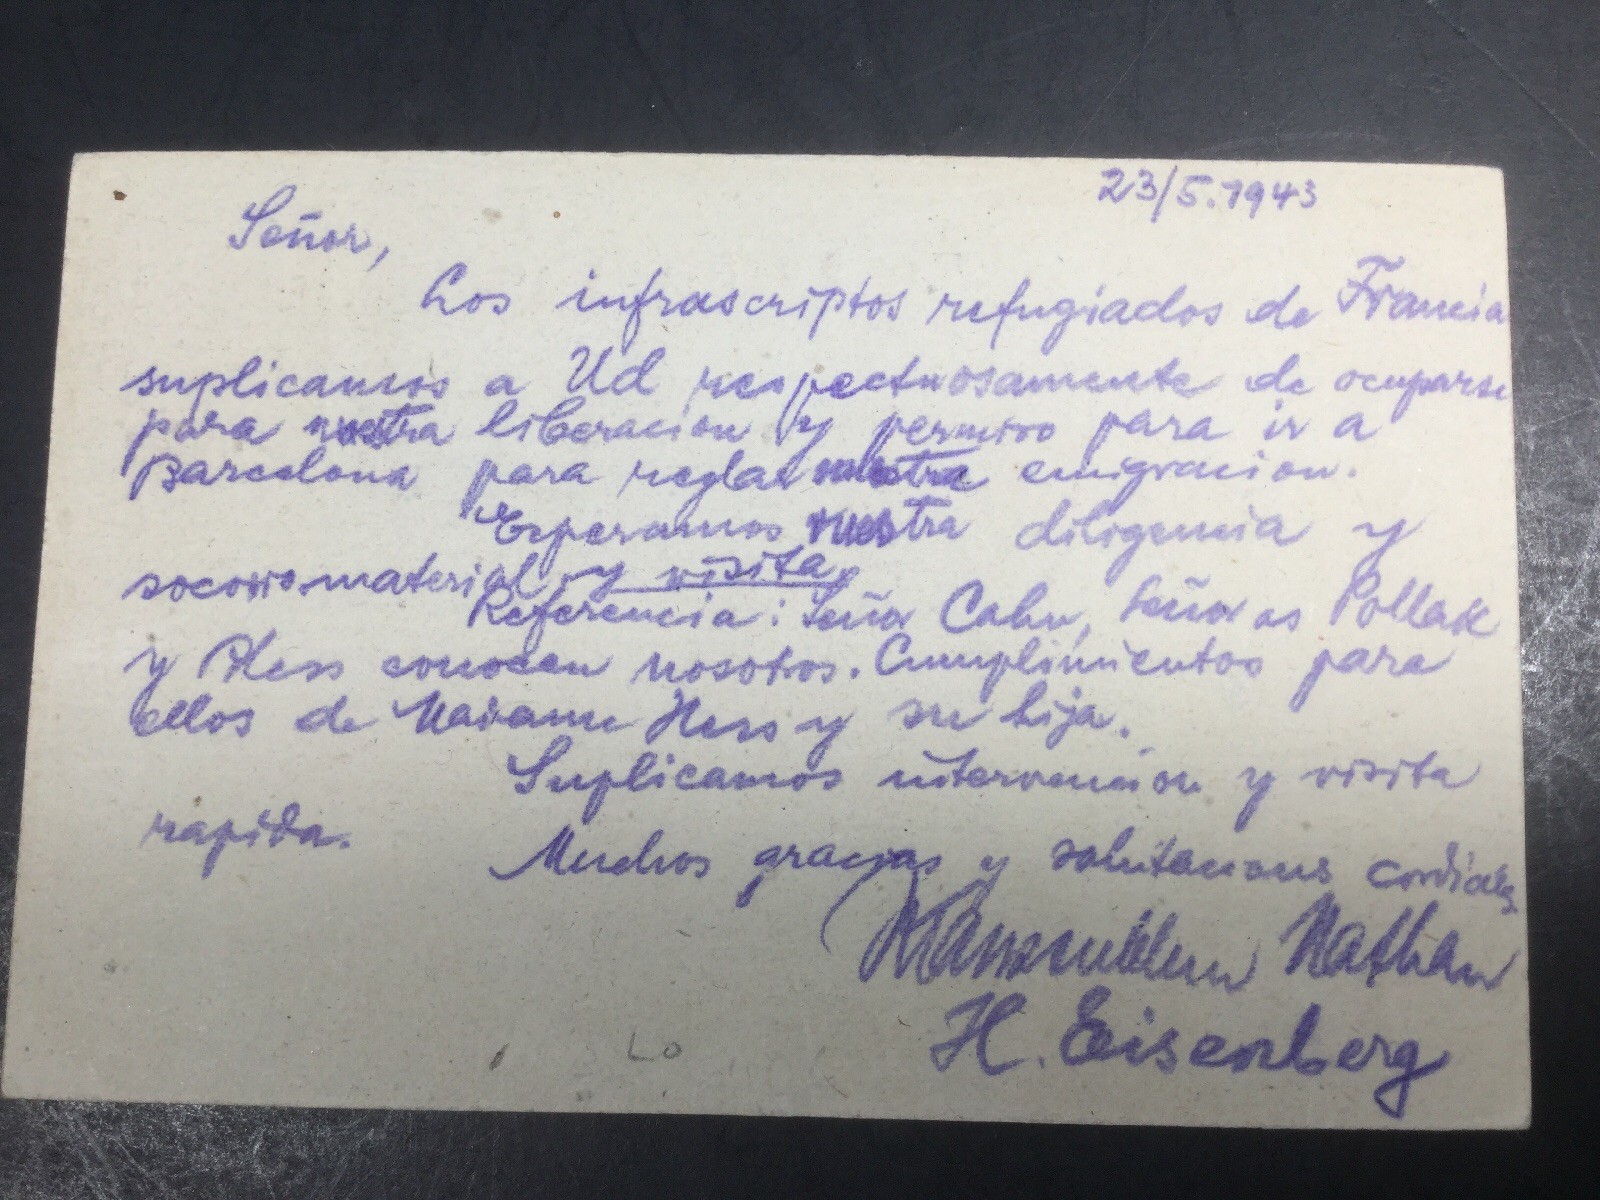 23/5.1943
Señor,
Los infrascriptos refugiados de Francia
suplicamos a Ud respectuosamente de ocuparse
para nuestra liberacion y permiso para ir a
Barcelona para reglar nuestra emigracion.
Esperamos vuestra diligencia y
socorro material y visita,
Referencia: Seña Cahn, Señoras Pollak
y Pless conocen nosotros. Cumplimientos para
ellos de Madame Hess y su hija.
Suplicamos intervencion y visita
rapida.
Muchos gracias y salutacions cordiales
Nathan
H. Eisenberg
Lo